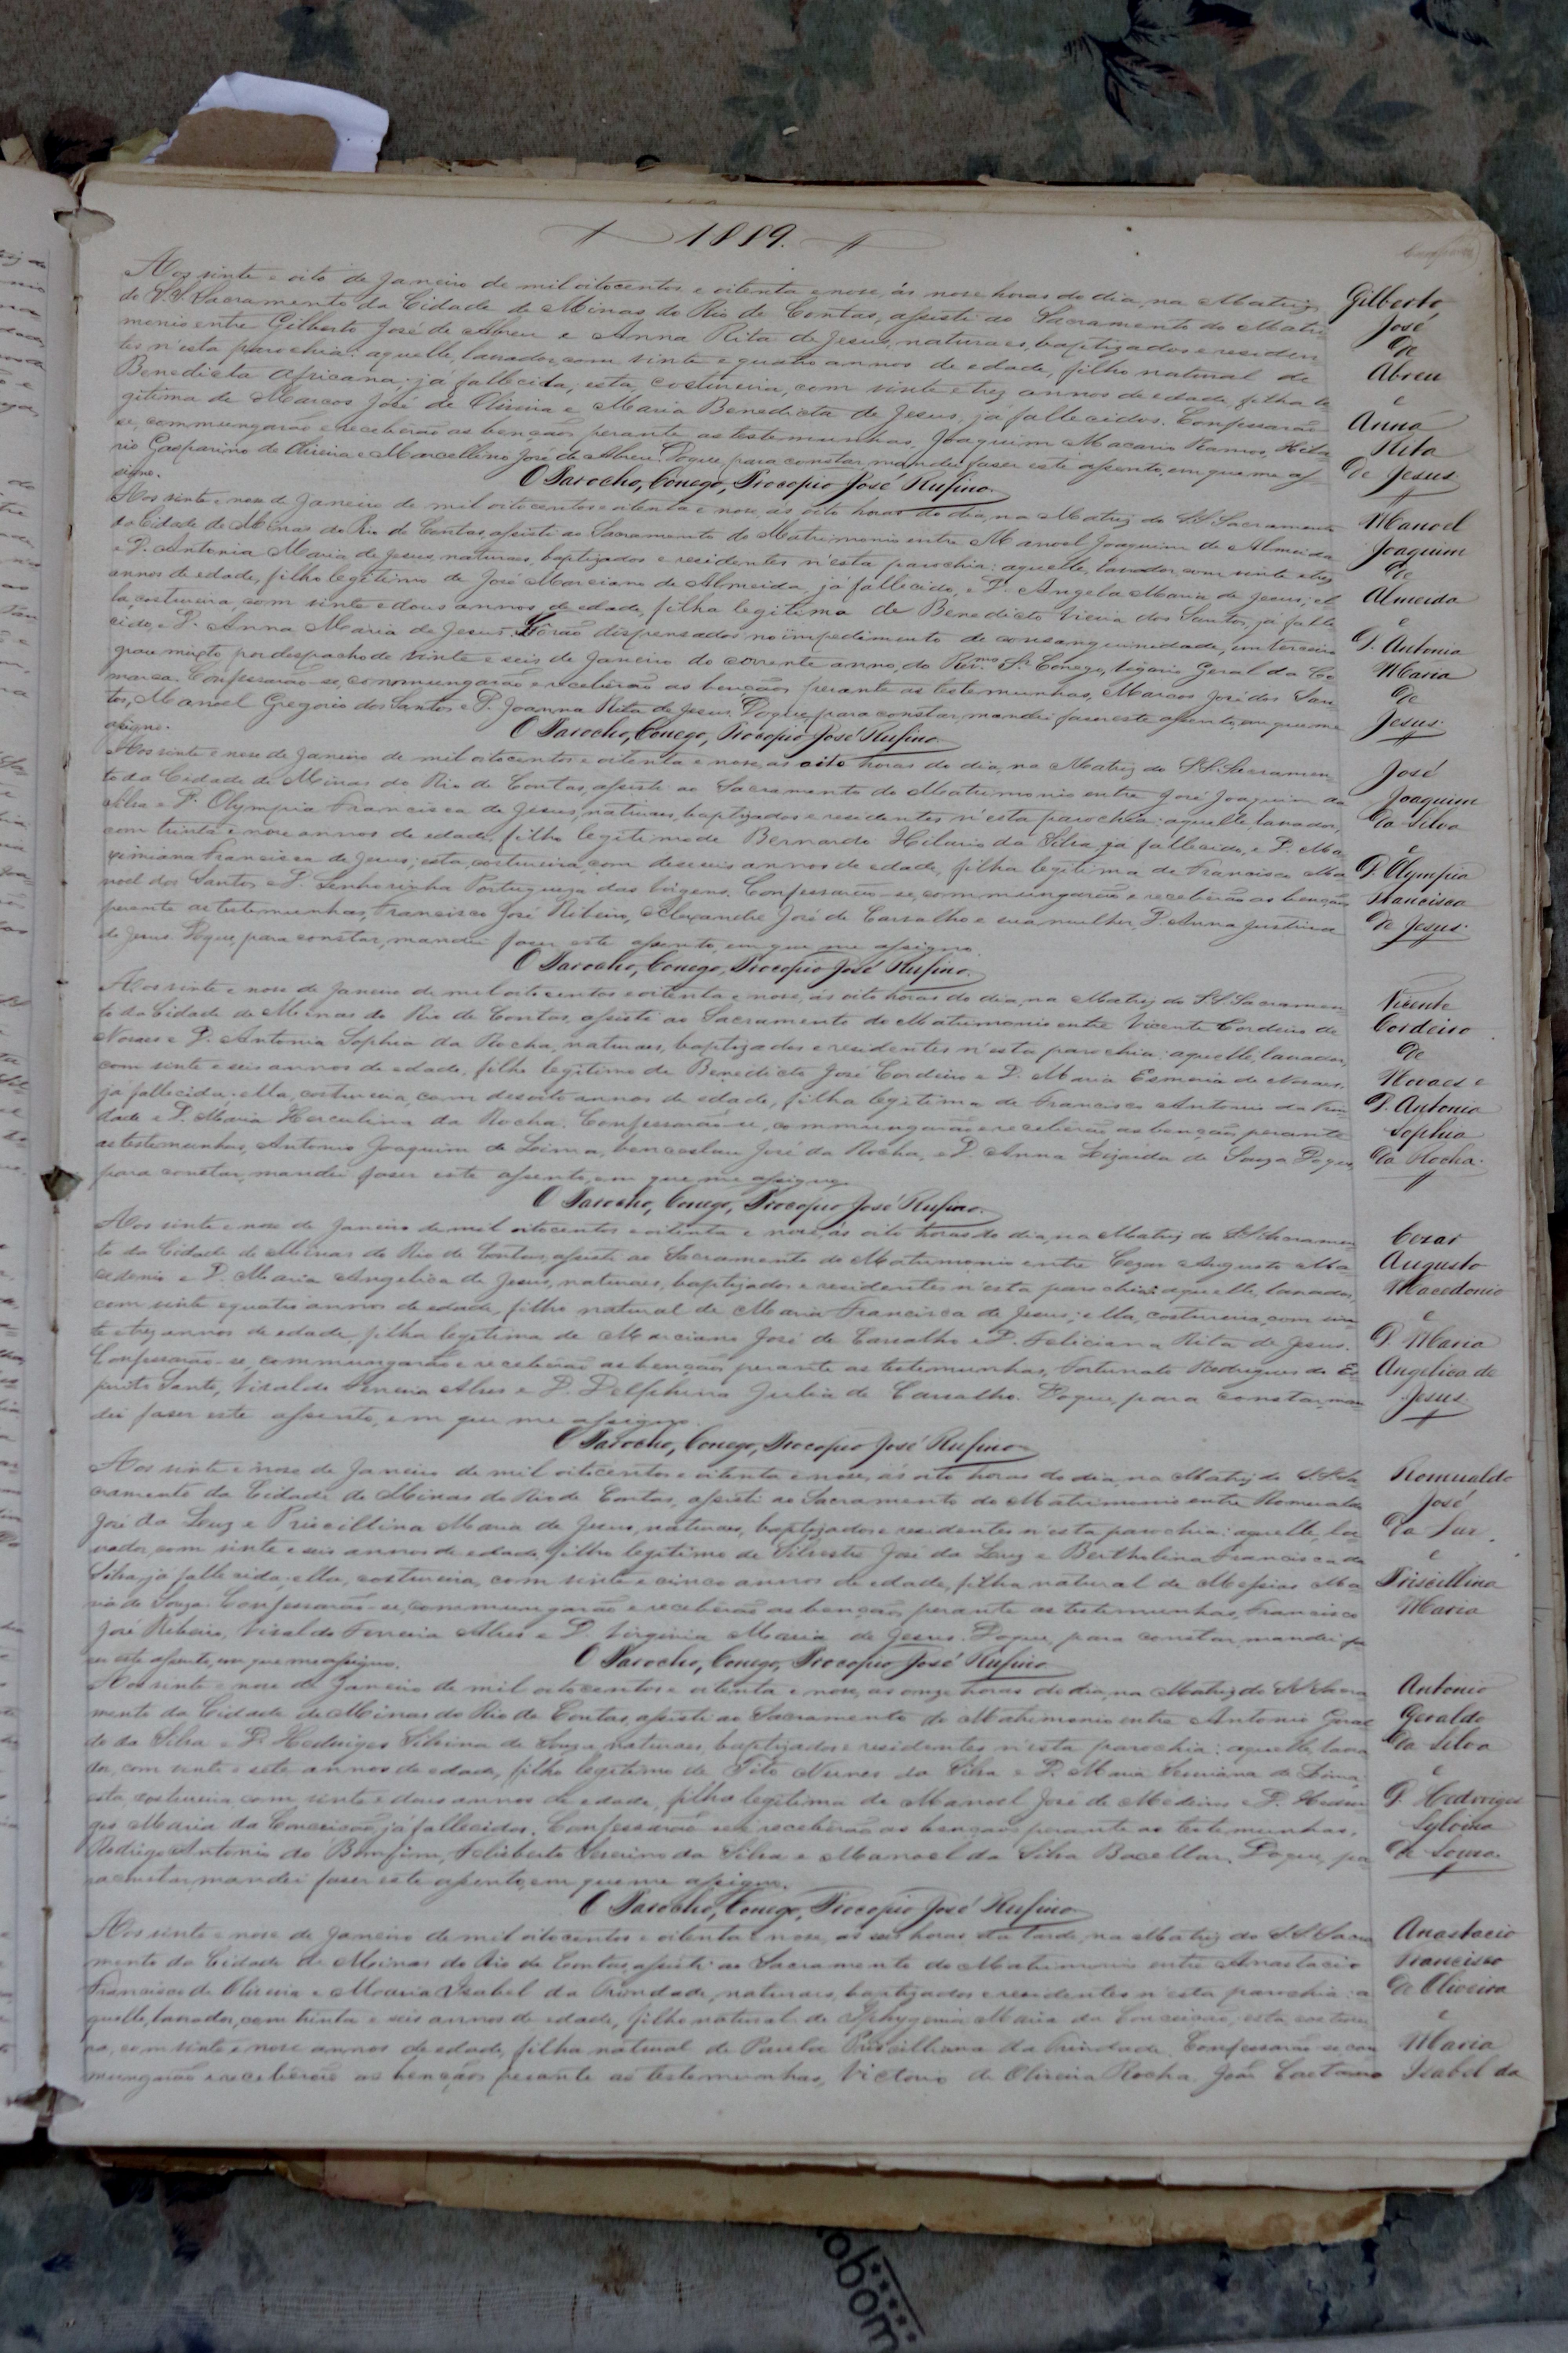 1889.
Aos vinte e oito de Janeiro de mil oitocentos e oitenta e nove, ás nove horas do dia, na Matriz
do S.S. Sacramento da Cidade de Minas do Rio de Contas, assisti ao Sacramento do Matri-
monio entre Gilberto José de Abreu e Anna Rita de Jesus, naturaes, baptizados e residen-
tes n'esta parochia: aquelle, lavrador, com vinte e quatro annos de edade, filho natural de
Benedicta Africana, já fallecida; esta, costureira, com vinte e trez annos de edade, filha le-
gitima de Marcos José de Oliveira e Maria Benedicta de Jesus, já fallecidos. Confessarão-
se, commungarão e receberão as bençãos perante as testemunhas, Joaquim Macario Ramos, Hila-
rio Gasparino de Oliveira e Marcellino José de Abreu. Do que, para constar, mandei faser este assento, em que me as-
signo.
O Parocho, Conego, Procopio José Rufino.
Gilberto
José
de
Abreu
e
Anna
Rita
de Jesus.
Aos vinte e nove de Janeiro de mil oitocentos e oitenta e nove, ás oito horas do dia, na Matriz do S.S. Sacramento
da Cidade de Minas do Rio de Contas, assisti ao Sacramento do Matrimonio entre Manoel Joaquim de Almeida
e D. Antonia Maria de Jesus, naturaes, baptizados e residentes n'esta parochia: aquelle, lavrador, com vinte e trez
annos de edade, filho legitimo de José Marciano de Almeida, já fallecido, e D. Angela Maria de Jesus; el-
la, costureira, com vinte e dous annos de edade, filha legitima de Benedicto Vieira dos Santos, já falle-
cido, e D. Anna Maria de Jesus. Forão dispensados no impedimento de consanguinidade, em terceiro
grau mixto por despacho de vinte e seis de Janeiro do corrente anno, do Rev.mo Sr. Conego, Vigario Geral da Co-
marca. Confessarão-se, commungarão e receberão as bençãos perante as testemunhas, Marcos José dos San-
tos, Manoel Gregorio dos Santos e D. Joanna Rita de Jesus. Do que, para constar, mandei faser este assento, em que me
assigno.
O Parocho, Conego, Procopio José Rufino.
Manoel
Joaquim
de
Almeida
e
D. Antonia
Maria
de
Jesus.
Aos vinte e nove de Janeiro de mil oitocentos e oitenta e nove, as oito horas do dia, na Matriz do S.S. Sacramen-
to da Cidade de Minas do Rio de Contas, assisti ao Sacramento do Matrimonio entre José Joaquim da
Silva e D. Olympia Francisca de Jesus, naturaes, baptizados e residentes n'esta parochia: aquelle, lavrador,
com trinta e nove annos de edade, filho legitimo de Bernardo Hilario da Silva, já fallecido, e D. Ma-
ximiana Francisca de Jesus; esta, costureira, com deseseis annos de edade, filha legitima de Francisco Ma-
noel dos Santos e D. Senhorinha Portugueza das Virgens. Confessarão-se, commungarão e receberão as bençãos
perante as testemunhas, Francisco José Ribeiro, Alexandre José de Carvalho e sua mulher, D. Anna Justina
de Jesus. Do que, para constar, mandei faser este assento, em que me assigno.
O Parocho, Conego, Procopio José Rufino.
José
Joaquim
da Silva
e
D. Olympia
Francisca
de Jesus.
Aos vinte e nove de Janeiro de mil oitocentos e oitenta e nove, ás oito horas do dia, na Matriz do S.S. Sacramen-
to da Cidade de Minas do Rio de Contas, assisti ao Sacramento do Matrimonio entre Vicente Cordeiro de
Novaes e D. Antonia Sophia da Rocha, naturaes, baptizados e residentes n'esta parochia: aquelle, lavrador,
com vinte e seis annos de edade, filho legitimo de Benedicto José Cordeiro e D. Maria Esmeria de Novaes,
já fallecida; ella, costureira, com desoito annos de edade, filha legitima de Francisco Antonio da Trin-
dade e D. Maria Herculina da Rocha. Confessarão-se, commungarão e receberão as bençãos perante
as testemunhas, Antonio Joaquim de Lima, Vencesláu José da Rocha, e D. Anna de Souza. Do que,
para constar, mandei faser este assento, em que me assigno.
O Parocho, Conego, Procopio José Rufino.
Vicente
Cordeiro
de
Novaes e
D. Antonia
Sophia
da Rocha.
Aos vinte e nove de Janeiro de mil oitocentos e oitenta e nove, ás oito horas do dia, na Matriz do S.S. Sacramen-
to da Cidade de Minas do Rio de Contas, assisti ao Sacramento do Matrimonio entre Cezar Augusto Ma-
cedonio e D. Maria Angelica de Jesus, naturaes, baptizados e residentes n'esta parochia: aquelle, lavrador,
com vinte e quatro annos de edade, filho natural de Maria Francisca de Jesus; ella, costureira, com vin-
te e trez annos de edade, filha legitima de Marciano José de Carvalho e D. Feliciana Rita de Jesus.
Confessarão-se, commungarão e receberão as bençãos perante as testemunhas, Fortunato Rodrigues do Es-
pirito Santo, Vivaldo Ferreira Alves e D. Delphina Julia de Carvalho. Do que, para constar, man-
dei faser este assento, em que me assigno.
O Parocho, Conego, Procopio José Rufino
Cezar
Augusto
Macedonio
e
D. Maria
Angelica de
Jesus.
Aos vinte e nove de Janeiro de mil oitocentos e oitenta e nove, ás oito horas do dia, na Matriz do S.S. Sa-
cramento da Cidade de Minas do Rio de Contas, assisti ao Sacramento do Matrimonio entre Romualdo
José da Luz e Priscillina Maria de Jesus, naturaes, baptizados e residentes n'esta parochia: aquelle, la-
vrador, com vinte e seis annos de edade, filho legitimo de Silvestre José da Luz e Bertholina Francisca da
Silva, já fallecida; ella, costureira, com vinte e cinco annos de edade, filha natural de Messias Ma-
ria de Souza. Confessarão-se, commungarão e receberão as bençãos perante as testemunhas, Francisco
José Ribeiro, Vivaldo Ferreira Alves e D. Virginia Maria de Jesus. Do que, para constar, mandei fa-
ser este assento, em que me assigno.
O Parocho, Conego, Procopio José Rufino
Romualdo
José
da Luz.
e
Priscillina
Maria
Aos vinte e nove de Janeiro de mil oitocentos e oitenta e nove, as onze horas do dia, na Matriz do S.S. Sacra-
mento da Cidade de Minas do Rio de Contas, assisti ao Sacramento do Matrimonio entre Antonio Geral-
do da Silva e D. Hedwiges Silvina de Souza, naturaes, baptizados e residentes n'esta parochia: aquelle, lavra-
dor, com vinte e sete annos de edade, filho legitimo de Tito Nunes da Silva e D. Maria de Lima;
esta, costureira, com vinte e dous annos de edade, filha legitima de Manoel José de Medeiros e D. Hedwi-
ges Maria da Conceição, já fallecidos. Confessarão-se e receberão as bençãos perante as testemunhas,
Rodrigo Antonio do Bomfim, Felisberto Severino da Silva e Manoel da Silva Bacellar. Do que, pa-
ra constar, mandei faser este assento, em que me assigno.
O Parocho, Conego, Procopio José Rufino
Antonio
Geraldo
da Silva
e
D. Hedwiges
Sylvina
de Souza.
Aos vinte e nove de Janeiro de mil oitocentos e oitenta e nove, as seis horas da tarde, na Matriz do S.S. Sacra-
mento da Cidade de Minas do Rio de Contas, assisti ao Sacramento do Matrimonio entre Anastacio
Francisco de Oliveira e Maria Isabel da Trindade, naturaes, baptizados e residentes n'esta parochia: a-
quelle, lavrador, com trinta e seis annos de edade, filho natural de Iphygenia Maria da Conceição; esta, costurei-
ra, com vinte e nove annos de edade, filha natural de Paula Priscilliana da Trindade. Confessarão-se, com-
mungarão e receberão as bençãos perante as testemunhas, Victorio de Oliveira Rocha, João Caetano
Anastacio
Francisco
de Oliveira
e
Maria
Isabel da